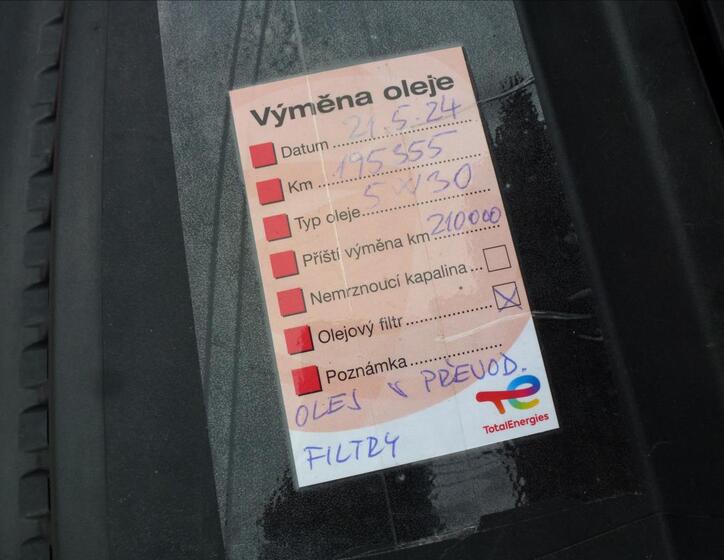 Výměna oleje
Datum 21.5.24
Km 195355
Typ oleje 5W30
Příští výměna km 210000
Nemrznoucí kapalina
Olejový filtr
Poznámka
OLEJ v PŘEVOD.
FILTRY
TotalEnergies